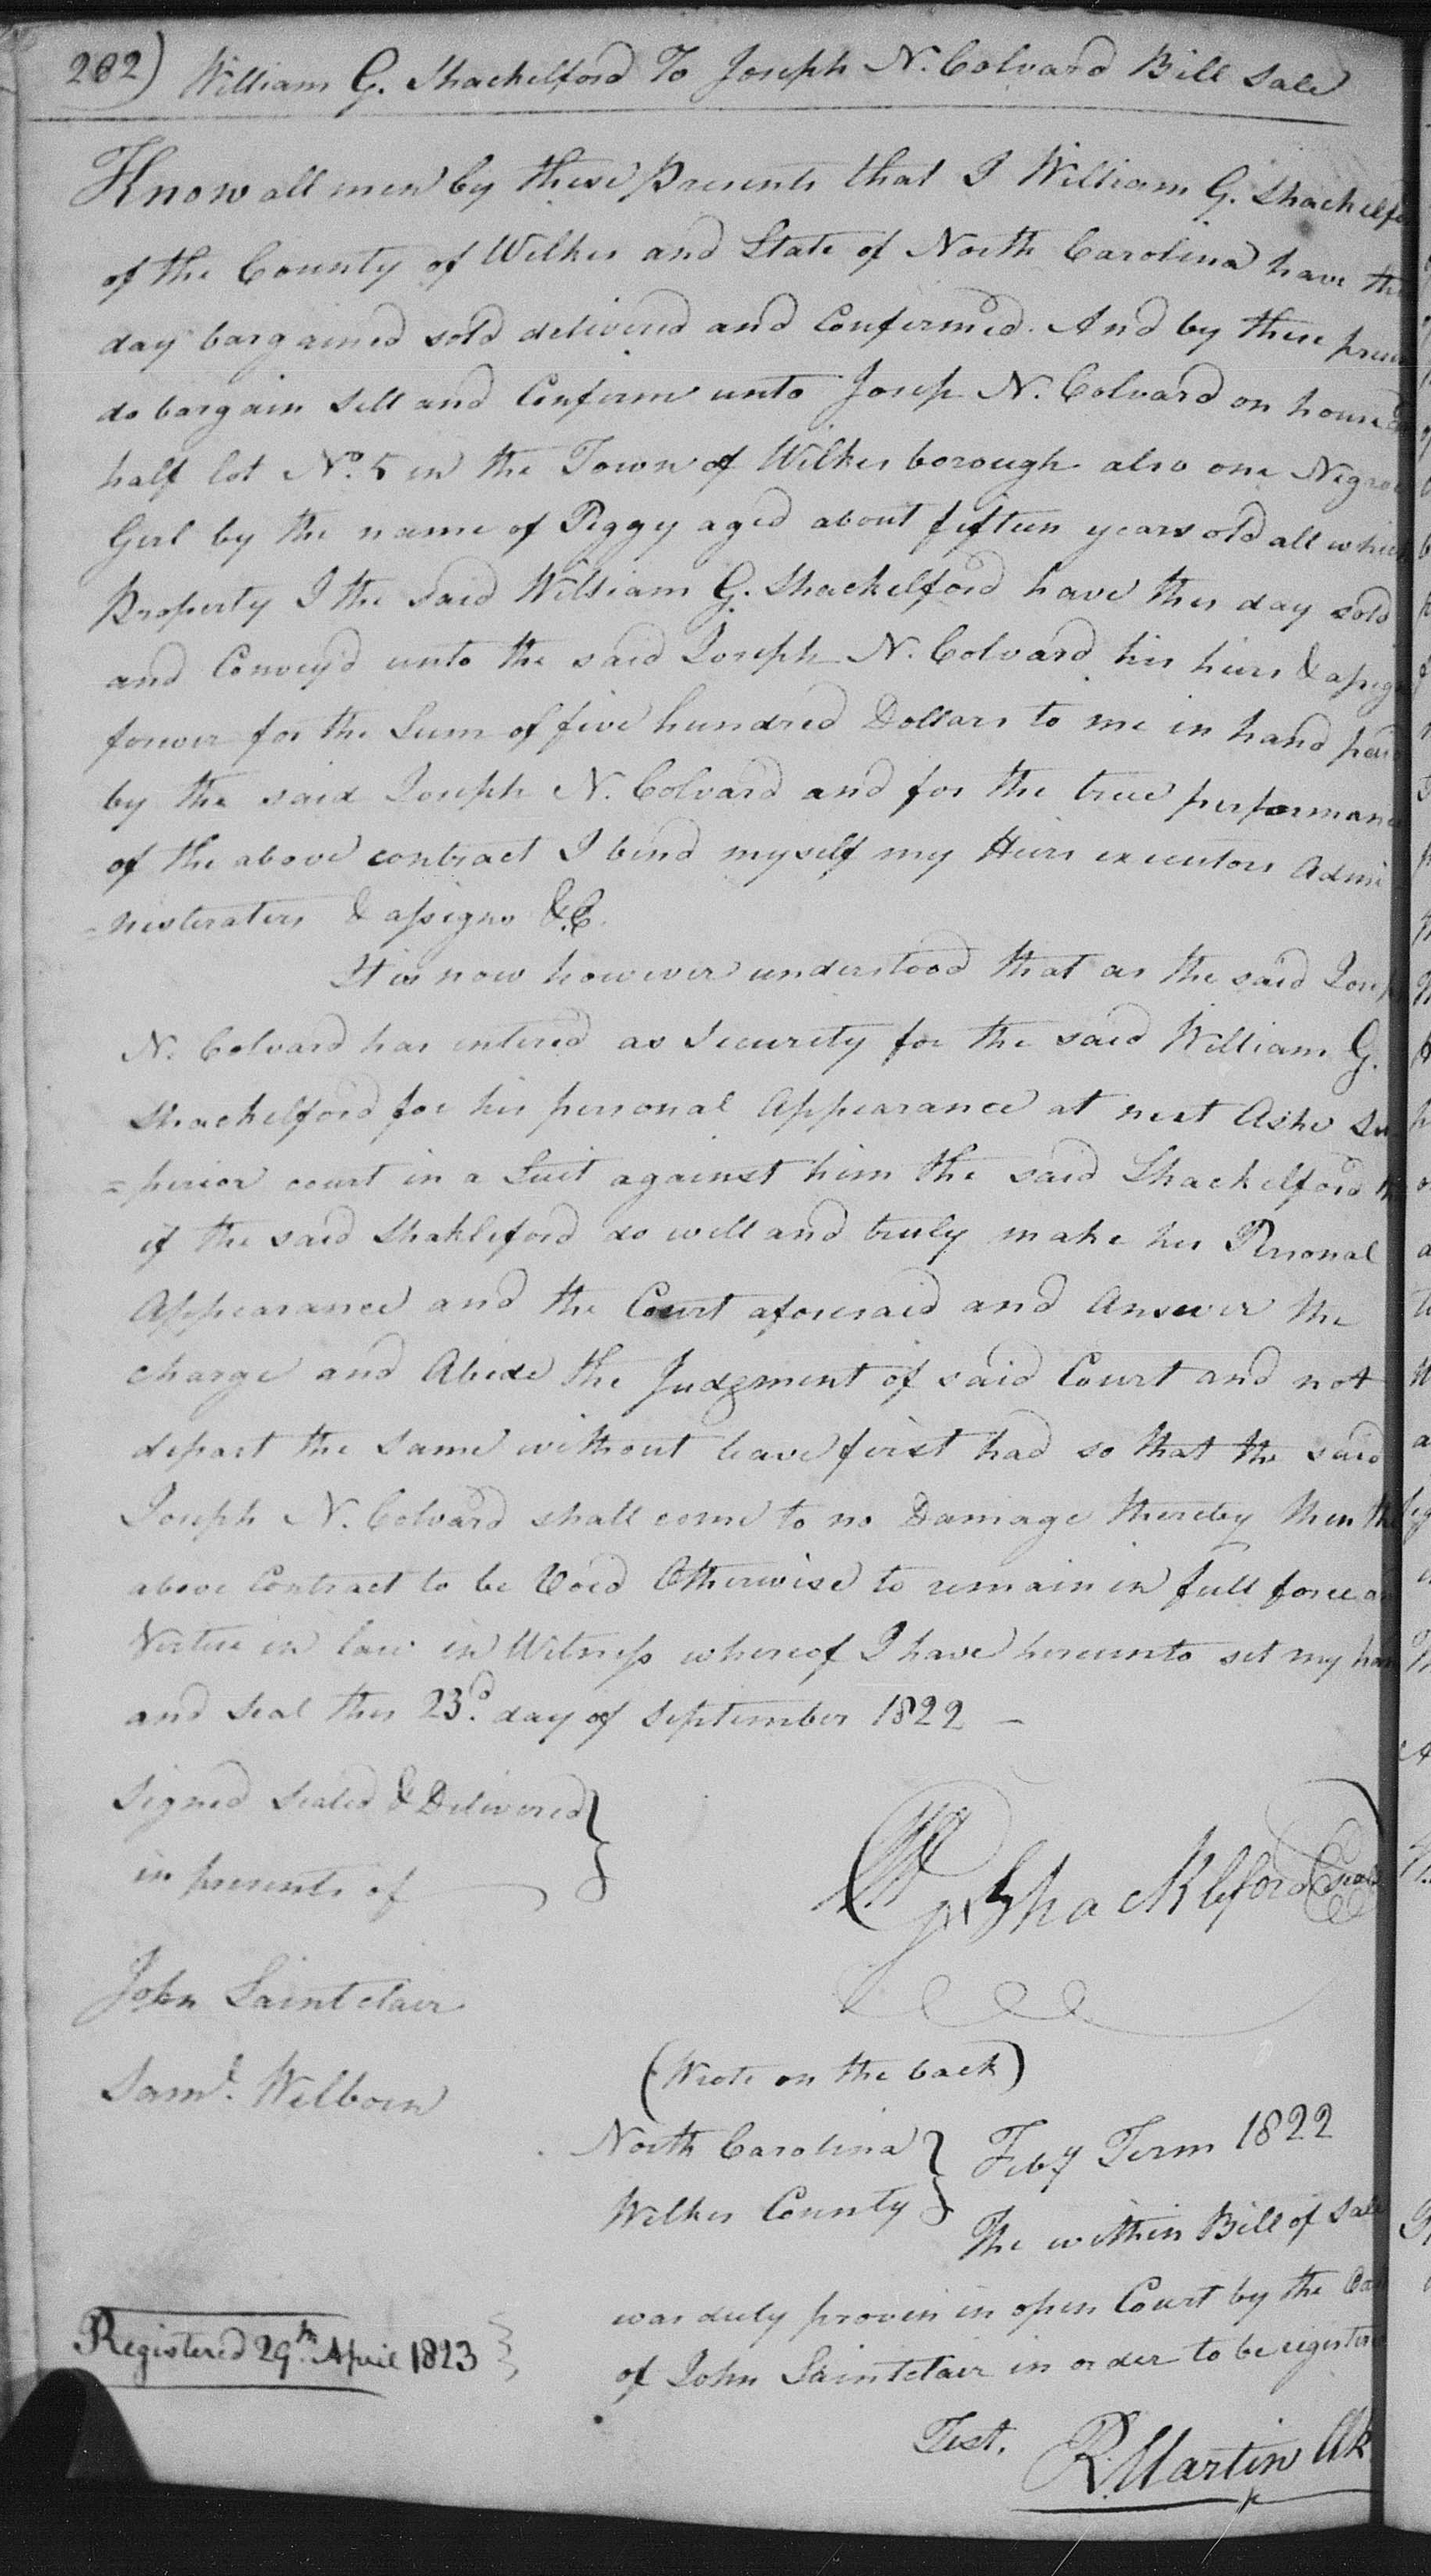 202) William G. Shackelford To Joseph N. Colvard Bill Sale
Know all men by these Presents that I William G. Shackelfo
of the County of Wilkes and State of North Carolina have th
day bargained sold delivered and Confirmed. And by these pres
do bargain sell and Confirm unto Josep N. Colvard on house
half lot No. 5 in the Town of Wilkesborough also one Negroe
Girl by the name of Peggy aged about fifteen years old all which
Property I the said William G. Shackelford have this day sold
and Convey'd unto the said Joseph N. Colvard his heirs & assign
forever for the Sum of five hundred Dollars to me in hand paid
by the said Joseph N. Colvard and for the true performance
of the above contract I bind myself my Heirs executors Admi
=nisterators & assigns &C.
It is now however understood that as the said Josep
N. Colvard has entered as Security for the said William G.
Shackelford for his personal Appearance at next Ashe Su
=perior court in a Suit against him the said Shackelford
if the said Shakleford do well and truly make his Personal
Appearance and the Court aforesaid and Answer the
charge and Abide the Judgment of said Court and not
depart the Same without leave first had so that the said
Joseph N. Colvard shall come to no Damage thereby then th
above Contract to be Void Otherwise to remain in full force an
Virtue in law in Witness whereof I have hereunto set my han
and Seal this 23d. day of September 1822 —
Signed Sealed & Delivered }
in presents of
W G Shackleford Seal
John Saintclair
Saml. Wilborn
(Wrote on the back)
North Carolina } Feby Term 1822
Wilkes County
The within Bill of Sale
was duly proven in open Court by the Oa
of John Saintclair in order to be registere
Registered 29th. April 1823
Test. R. Martin Clk